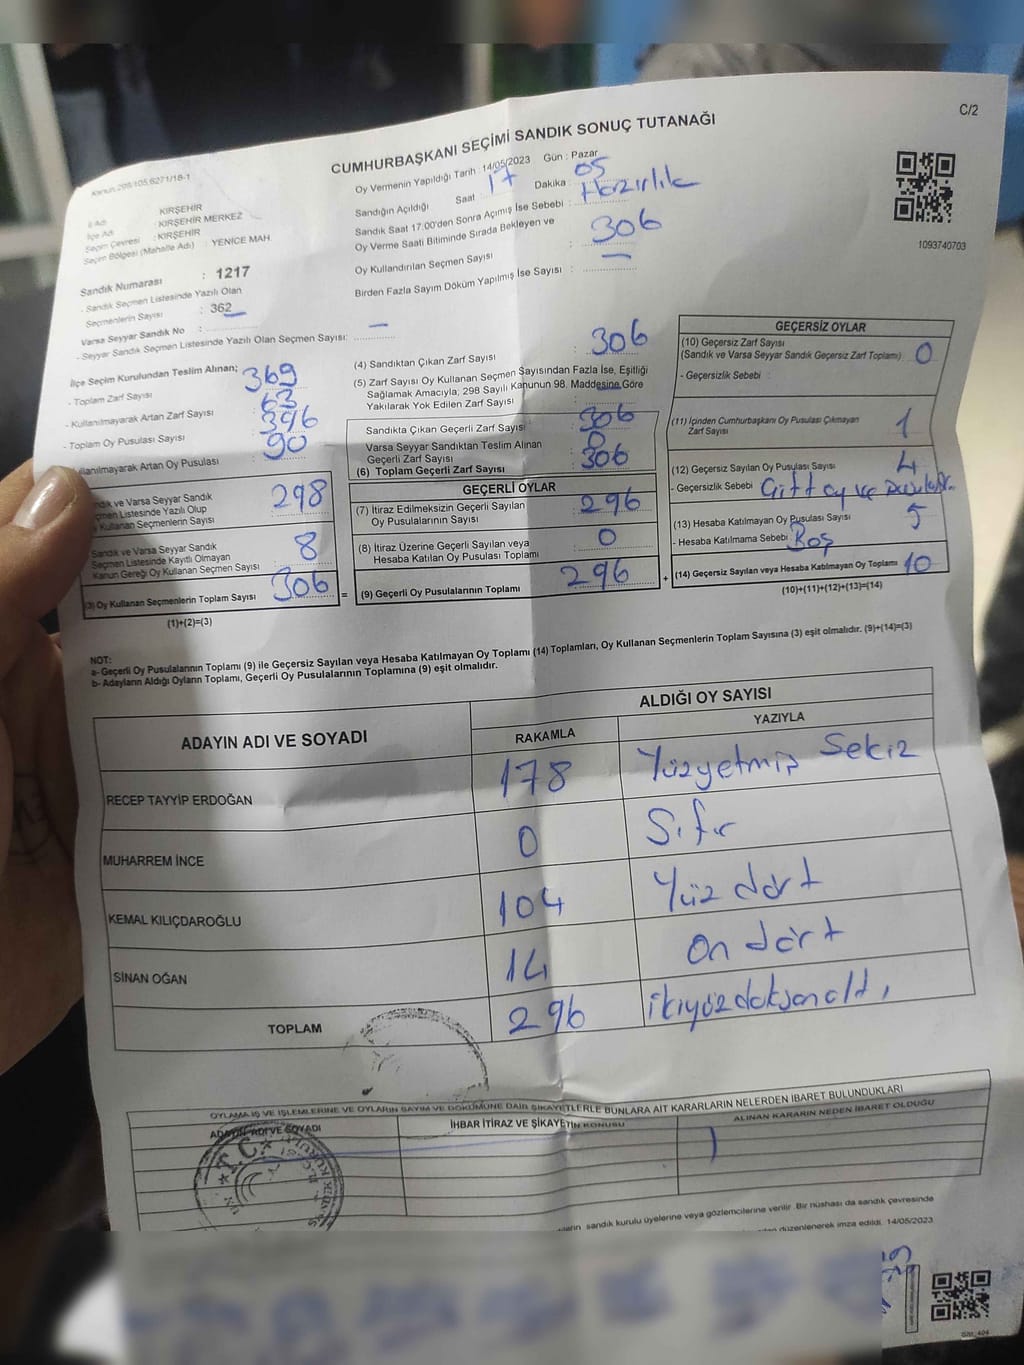 C/2
CUMHURBAŞKANI SEÇİMİ SANDIK SONUÇ TUTANAĞI
Kanun 298/105,6271/18-1
Oy Vermenin Yapıldığı Tarih : 14/05/2023 Gün : Pazar
Sandığın Açıldığı Saat 17 Dakika : 05
Sandık Saat 17:00'den Sonra Açımış İse Sebebi : Hazırlık
Oy Verme Saati Bitiminde Sırada Bekleyen ve
Oy Kullandırılan Seçmen Sayısı : 306
Birden Fazla Sayım Döküm Yapılmış İse Sayısı : —
1093740703
İl Adı : KIRŞEHİR
İlçe Adı : KIRŞEHİR MERKEZ
Seçim Çevresi : KIRŞEHİR
Seçim Bölgesi (Mahalle Adı) : YENİCE MAH.
Sandık Numarası : 1217
- Sandık Seçmen Listesinde Yazılı Olan
Seçmenlerin Sayısı : 362
Varsa Seyyar Sandık No :
- Seyyar Sandık Seçmen Listesinde Yazılı Olan Seçmen Sayısı: —
İlçe Seçim Kurulundan Teslim Alınan;
- Toplam Zarf Sayısı : 369
- Kullanılmayarak Artan Zarf Sayısı : 63
- Toplam Oy Pusulası Sayısı : 396
Kullanılmayarak Artan Oy Pusulası : 90
Sandık ve Varsa Seyyar Sandık
Seçmen Listesinde Yazılı Olup
Oy Kullanan Seçmenlerin Sayısı : 298
Sandık ve Varsa Seyyar Sandık
Seçmen Listesinde Kayıtlı Olmayan
Kanun Gereği Oy Kullanan Seçmen Sayısı : 8
(3) Oy Kullanan Seçmenlerin Toplam Sayısı 306 =
(1)+(2)=(3)
(4) Sandıktan Çıkan Zarf Sayısı : 306
(5) Zarf Sayısı Oy Kullanan Seçmen Sayısından Fazla İse, Eşitliği
Sağlamak Amacıyla; 298 Sayılı Kanunun 98. Maddesine Göre
Yakılarak Yok Edilen Zarf Sayısı : —
Sandıkta Çıkan Geçerli Zarf Sayısı : 306
Varsa Seyyar Sandıktan Teslim Alınan
Geçerli Zarf Sayısı : 0
(6) Toplam Geçerli Zarf Sayısı : 306
GEÇERLİ OYLAR
(7) İtiraz Edilmeksizin Geçerli Sayılan
Oy Pusulalarının Sayısı : 296
(8) İtiraz Üzerine Geçerli Sayılan veya
Hesaba Katılan Oy Pusulası Toplamı : 0
(9) Geçerli Oy Pusulalarının Toplamı 296 +
GEÇERSİZ OYLAR
(10) Geçersiz Zarf Sayısı
(Sandık ve Varsa Seyyar Sandık Geçersiz Zarf Toplamı) : 0
- Geçersizlik Sebebi :
(11) İçinden Cumhurbaşkanı Oy Pusulası Çıkmayan
Zarf Sayısı : 1
(12) Geçersiz Sayılan Oy Pusulası Sayısı : 4
- Geçersizlik Sebebi : Çift oy ve
(13) Hesaba Katılmayan Oy Pusulası Sayısı : 5
- Hesaba Katılmama Sebebi : Boş
(14) Geçersiz Sayılan veya Hesaba Katılmayan Oy Toplamı 10
(10)+(11)+(12)+(13)=(14)
NOT:
a- Geçerli Oy Pusulalarının Toplamı (9) ile Geçersiz Sayılan veya Hesaba Katılmayan Oy Toplamı (14) Toplamları, Oy Kullanan Seçmenlerin Toplam Sayısına (3) eşit olmalıdır. (9)+(14)=(3)
b- Adayların Aldığı Oyların Toplamı, Geçerli Oy Pusulalarının Toplamına (9) eşit olmalıdır.
ADAYIN ADI VE SOYADI
ALDIĞI OY SAYISI
RAKAMLA YAZIYLA
RECEP TAYYİP ERDOĞAN 178 Yüzyetmiş Sekiz
MUHARREM İNCE 0 Sıfır
KEMAL KILIÇDAROĞLU 104 Yüz dört
SİNAN OĞAN 14 On dört
TOPLAM 296 ikiyüzdoksanaltı
OYLAMA İŞ VE İŞLEMLERİNE VE OYLARIN SAYIM VE DÖKÜMÜNE DAİR ŞİKAYETLERLE BUNLARA AİT KARARLARIN NELERDEN İBARET BULUNDUKLARI
ADAYIN ADI VE SOYADI İHBAR İTİRAZ VE ŞİKAYETİN KONUSU ALINAN KARARIN NEDEN İBARET OLDUĞU
T.C.
sandık kurulu üyelerine veya gözlemcilerine verilir. Bir nüshası da sandık çevresinde
düzenlenerek imza edildi. 14/05/2023